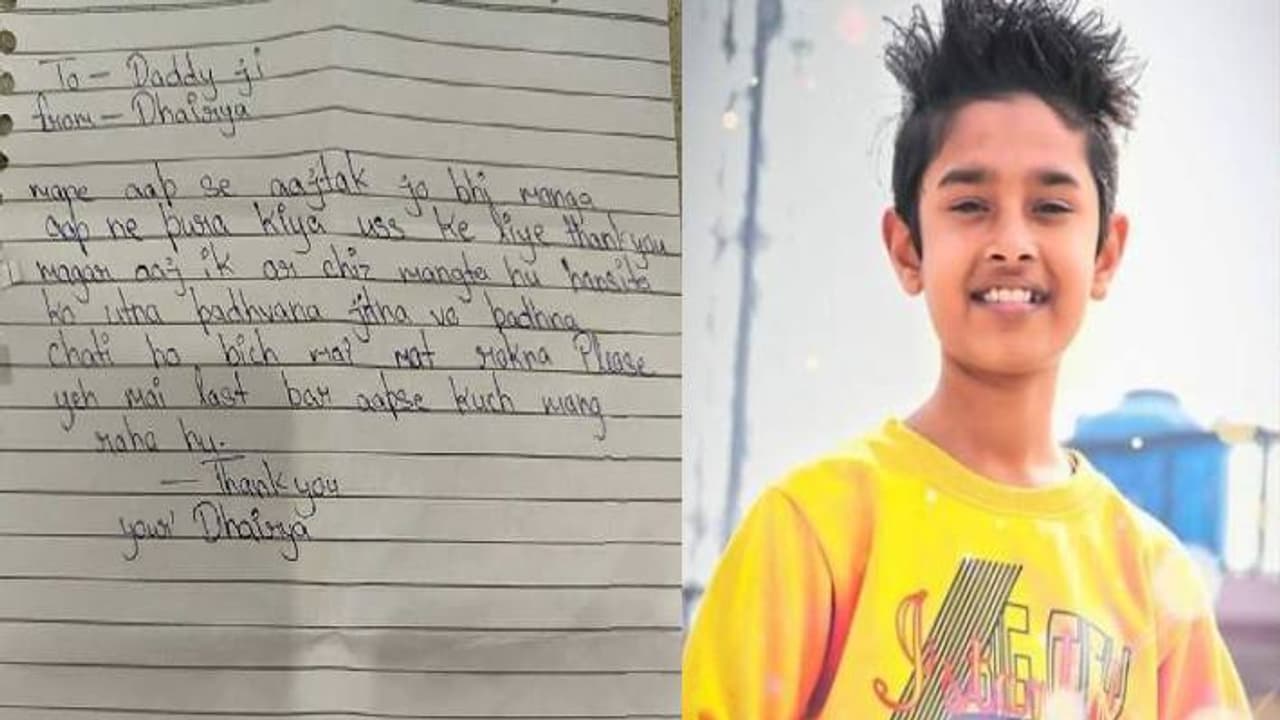 To - Daddy ji
from - Dhairya
mane aap se aajtak jo bhi manga
aap ne pura kiya uss ke liye thankyou
magar aaj ik or chiz mangta hu
ko utna padhvana jitna vo padhna
chati ho bich mai mat rokna Please
yeh mai last bar aapse kuch mang
raha hu.
- Thank you
your' Dhairya